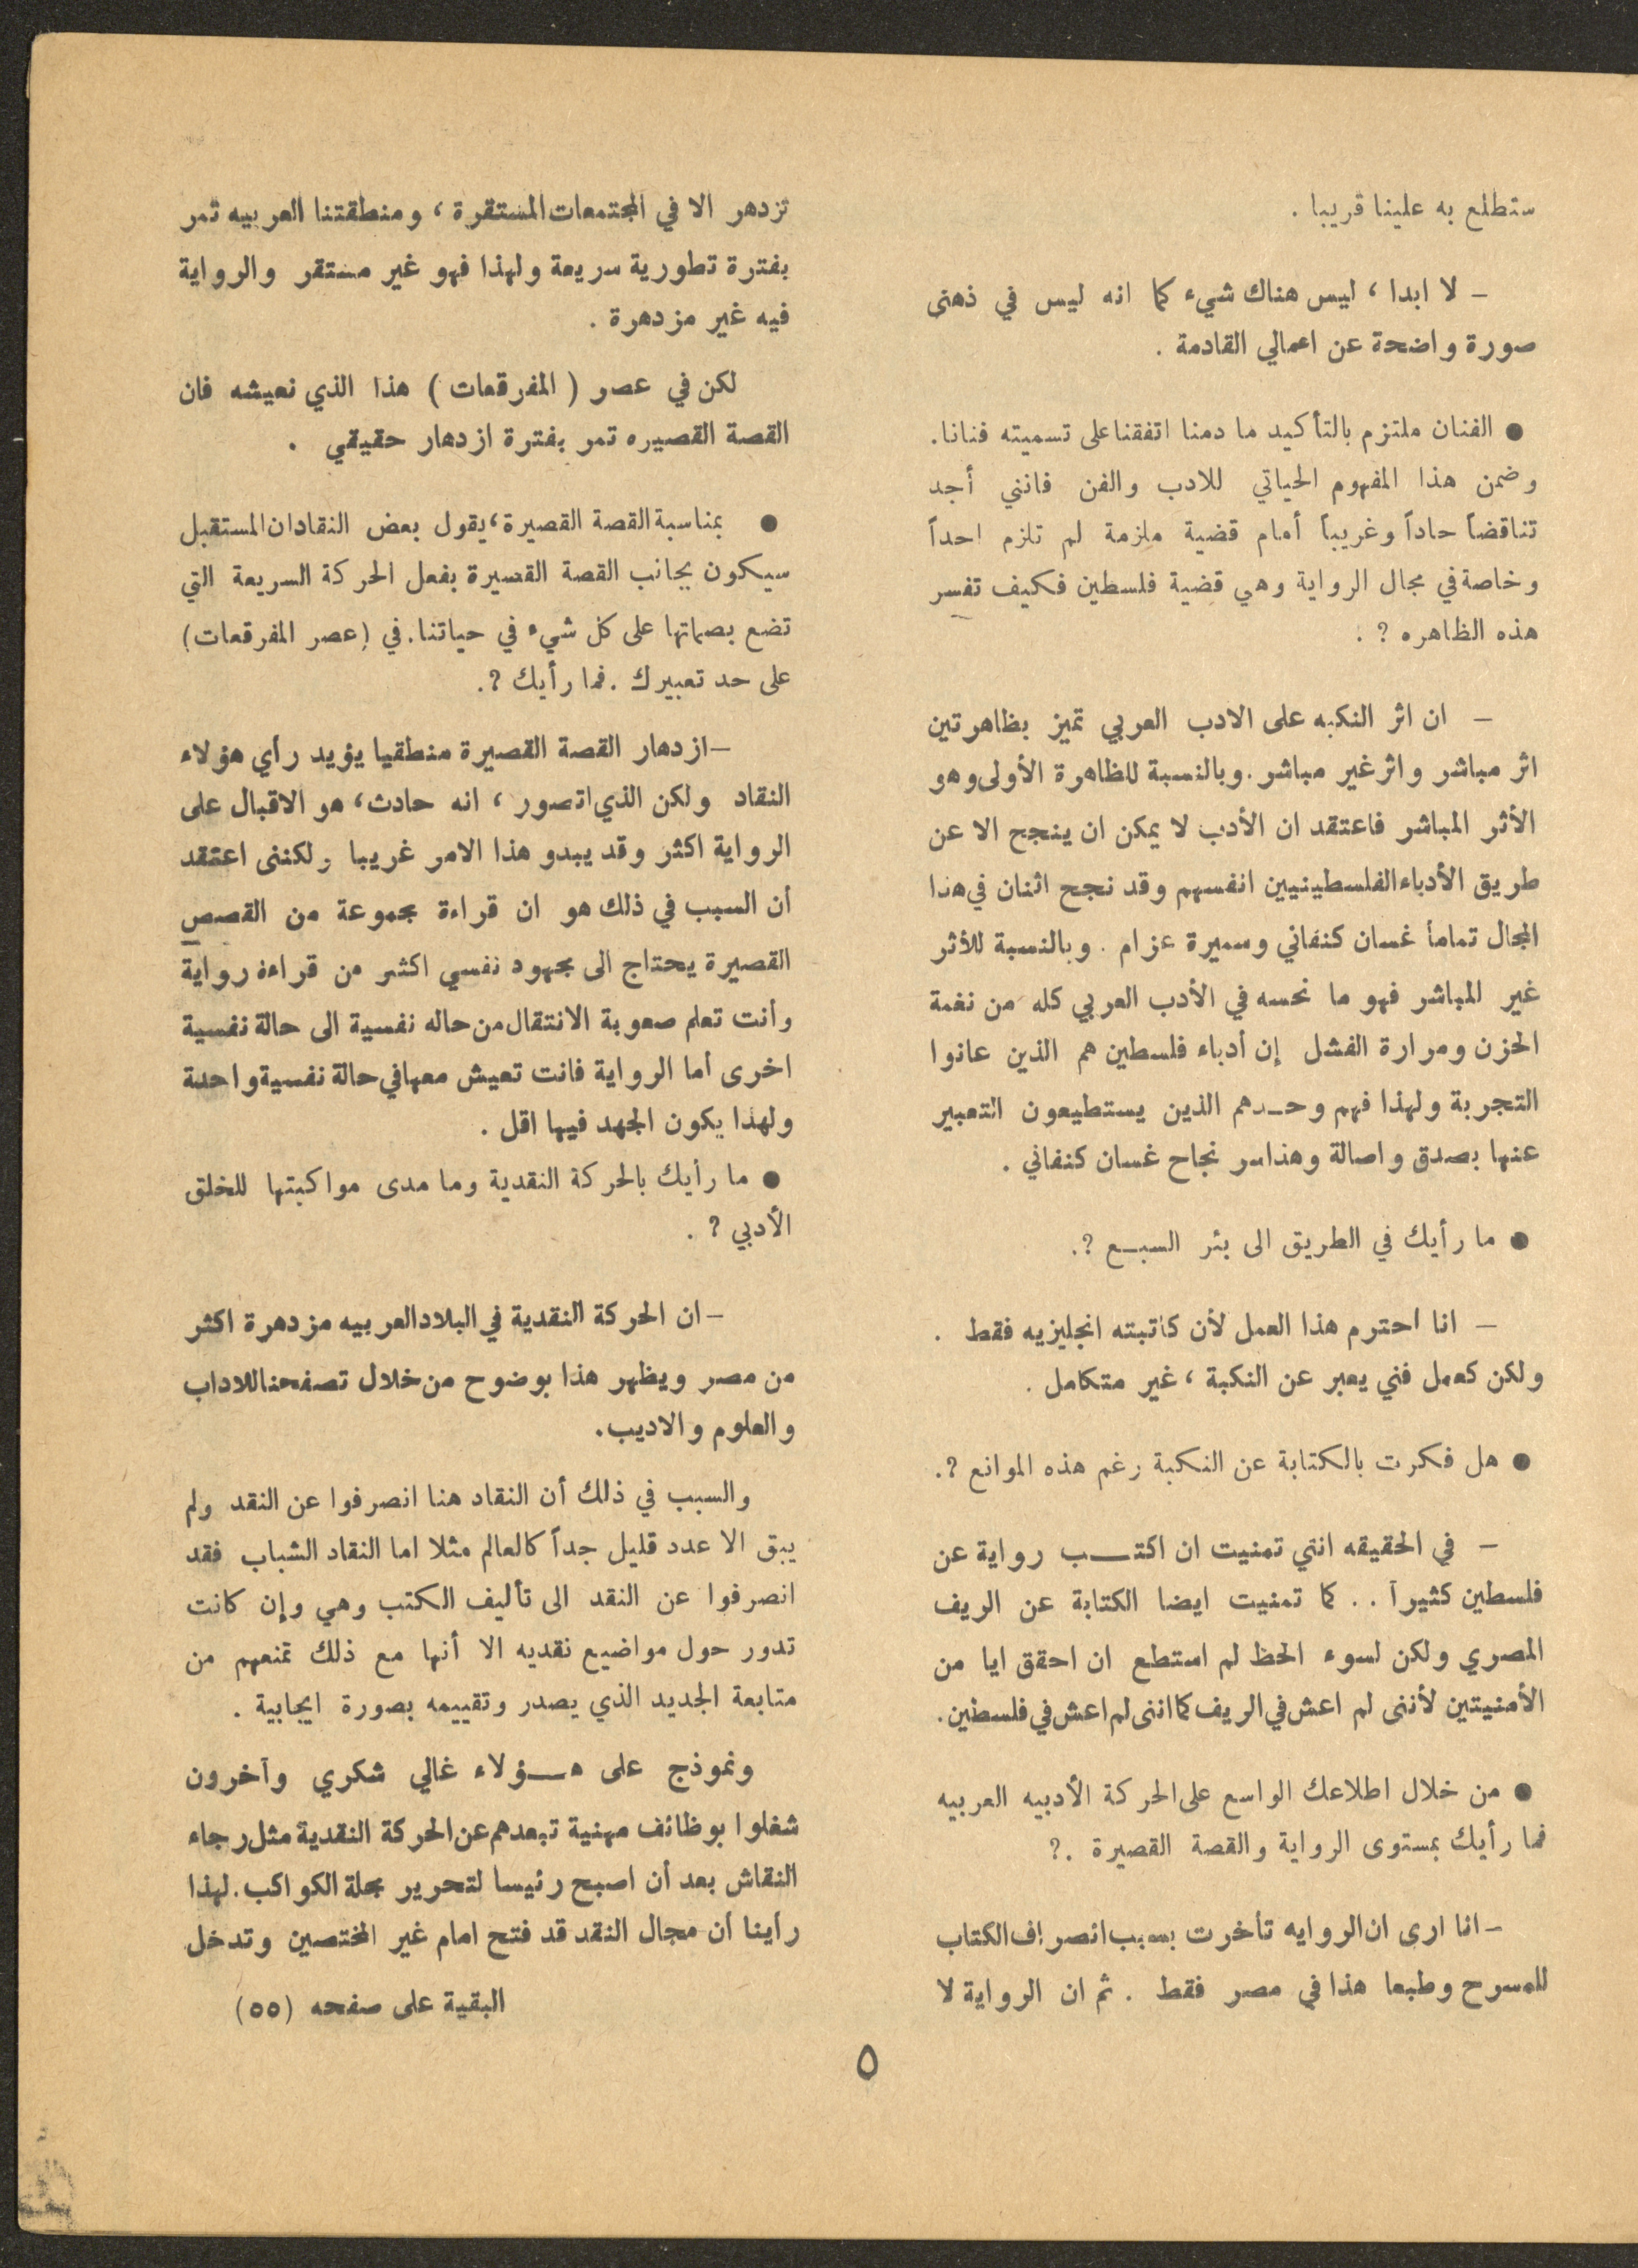 ستطلع به علينا قريبا .
– لا ابدا ، ليس هناك شيء كما انه ليس في ذهني
صورة واضحة عن اعمالي القادمة .
● الفنان ملتزم بالتأكيد ما دمنا اتفقنا على تسميته فنانا.
وضمن هذا المفهوم الحياتي للادب والفن فانني أجد
تناقضاً حاداً وغريباً أمام قضية ملزمة لم تلزم احداً
وخاصة في مجال الرواية وهي قضية فلسطين فكيف تفسر
هذه الظاهره ؟ .
– ان اثر النكبه على الادب العربي تميز بظاهرتين
اثر مباشر واثر غير مباشر. وبالنسبة للظاهرة الأولى وهو
الأثر المباشر فاعتقد ان الأدب لا يمكن ان ينجح الا عن
طريق الأدباء الفلسطينيين انفسهم وقد نجح اثنان في هذا
المجال تماماً غسان كنفاني وسميرة عزام . وبالنسبة للأثر
غير المباشر فهو ما نحسه في الأدب العربي كله من نغمة
الحزن ومرارة الفشل إن أدباء فلسطين هم الذين عانوا
التجربة ولهذا فهم وحــدهم الذين يستطيعون التعبير
عنها بصدق واصالة وهذا سر نجاح غسان كنفاني .
● ما رأيك في الطريق الى بئر السبــع ؟.
– انا احترم هذا العمل لأن كاتبته انجليزيه فقط .
ولكن كعمل فني يعبر عن النكبة ، غير متكامل .
● هل فكرت بالكتابة عن النكبة رغم هذه الموانع ؟.
– في الحقيقه انني تمنيت ان اكتـــب رواية عن
فلسطين كثيراً . . كما تمنيت ايضا الكتابة عن الريف
المصري ولكن لسوء الحظ لم استطع ان احقق ايا من
الأمنيتين لأننى لم اعش في الريف كما اننى لم اعش في فلسطين.
● من خلال اطلاعك الواسع على الحركة الأدبيه العربيه
فما رأيك بمستوى الرواية والقصة القصيرة .؟
– انا ارى ان الروايه تأخرت بسبب انصراف الكتاب
للمسرح وطبعا هذا في مصر فقط . ثم ان الرواية لا
تزدهر الا في المجتمعات المستقرة ، ومنطقتنا العربيه تمر
بفترة تطورية سريعة ولهذا فهو غير مستقر والرواية
فيه غير مزدهرة .
لكن في عصر ( المفرقعات ) هذا الذي نعيشه فان
القصة القصيره تمر بفترة ازدهار حقيقي .
● بمناسبة القصة القصيرة، يقول بعض النقاد ان المستقبل
سيكون بجانب القصة القصيرة بفعل الحركة السريعة التي
تضع بصماتها على كل شيء في حياتنا. في (عصر المفرقعات)
على حد تعبيرك . فما رأيك ؟.
– ازدهار القصة القصيرة منطقيا يؤيد رأي هؤلاء
النقاد ولكن الذي اتصور ، انه حادث، هو الاقبال على
الرواية اكثر وقد يبدو هذا الامر غريبا ولكننى اعتقد
أن السبب في ذلك هو ان قراءة مجموعة من القصص
القصيرة يحتاج الى مجهود نفسي اكثر من قراءة رواية
وأنت تعلم صعوبة الانتقال من حاله نفسية الى حالة نفسية
اخرى أما الرواية فانت تعيش معها في حالة نفسية واحدة
ولهذا يكون الجهد فيها اقل .
● ما رأيك بالحركة النقدية وما مدى مواكبتها للخلق
الأدبي ؟ .
– ان الحركة النقدية في البلاد العربيه مزدهرة اكثر
من مصر ويظهر هذا بوضوح من خلال تصفحنا للاداب
والعلوم والاديب.
والسبب في ذلك أن النقاد هنا انصرفوا عن النقد ولم
يبق الا عدد قليل جداً كالعالم مثلا اما النقاد الشباب فقد
انصرفوا عن النقد الى تأليف الكتب وهي وإن كانت
تدور حول مواضيع نقديه الا أنها مع ذلك تمنعهم من
متابعة الجديد الذي يصدر وتقييمه بصورة ايجابية .
ونموذج على هــؤلاء غالي شكري وآخرون
شغلوا بوظائف مهنية تبعدهم عن الحركة النقدية مثل رجاء
النقاش بعد أن اصبح رئيسا لتحرير مجلة الكواكب. لهذا
رأينا أن مجال النقد قد فتح امام غير المختصين وتدخل
البقية على صفحه (٥٥)
٥